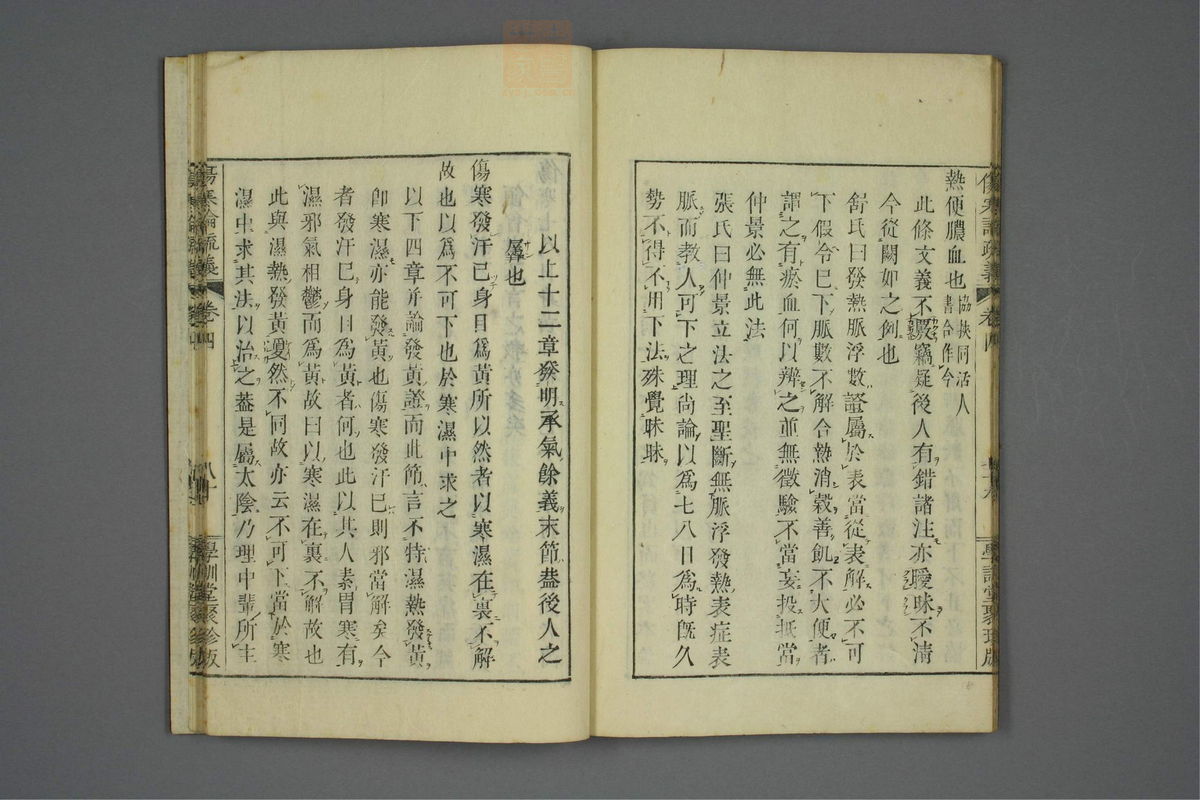 傷寒論疏義
卷四
學訓堂聚珍版
熱便膿血也協挾同活人
書合作今
此條文義不覈竊疑後人有錯諸注亦曖昧不清
今從闕如之例也
舒氏曰發熱脈浮數證屬於表當從表解必不可
下假令已下脈數不解合熱消穀善飢不大便者
謂之有瘀血何以辨之並無徵驗不當妄投抵當
仲景必無此法
張氏曰仲景立法之至聖斷無脈浮發熱表症表
脈而教人可下之理尚論以為七八日為時既久
勢不得不用下法殊覺昧昧
以上十二章發明承氣餘義末節蓋後人之
羼也
傷寒發汗已身目為黃所以然者以寒濕在裏不解
故也以為不可下也於寒濕中求之
以下四章并論發黃證而此節言不特濕熱發黃
即寒濕亦能發黃也傷寒發汗已則邪當解矣今
者發汗已身目為黃者何也此以其人素胃寒有
濕邪氣相鬱而為黃故曰以寒濕在裏不解故也
此與濕熱發黃敻然不同故亦云不可下當於寒
濕中求其法以治之蓋是屬太陰乃理中輩所主
傷寒論疏義
卷四
八十
學訓堂聚珍版